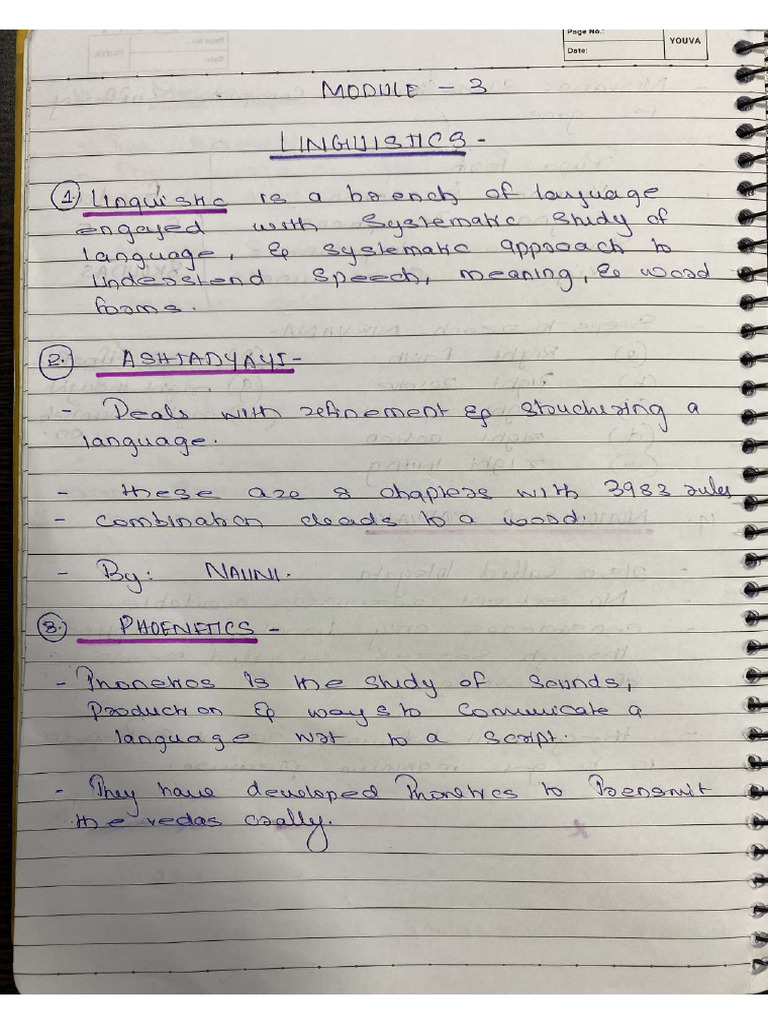 Page No.:
Date:
YOUVA
MODULE - 3
LINGUISTICS -
1 Linguistic is a brench of language
engaged with systematic study of
language, & systematic approach to
understend speech, meaning, & word
forms.
2. ASHTADYAYI -
- Deals with refinement & stuchering a
language.
- these are 8 chapters with 3983 rules
- combination cleads to a word.
- By: NALINI.
3. PHOENETICS -
- Phonetics is the study of sounds,
production & ways to comunicate a
language wrt to a script.
- They have developed Phonetics to Trensmit
the vedas orally.